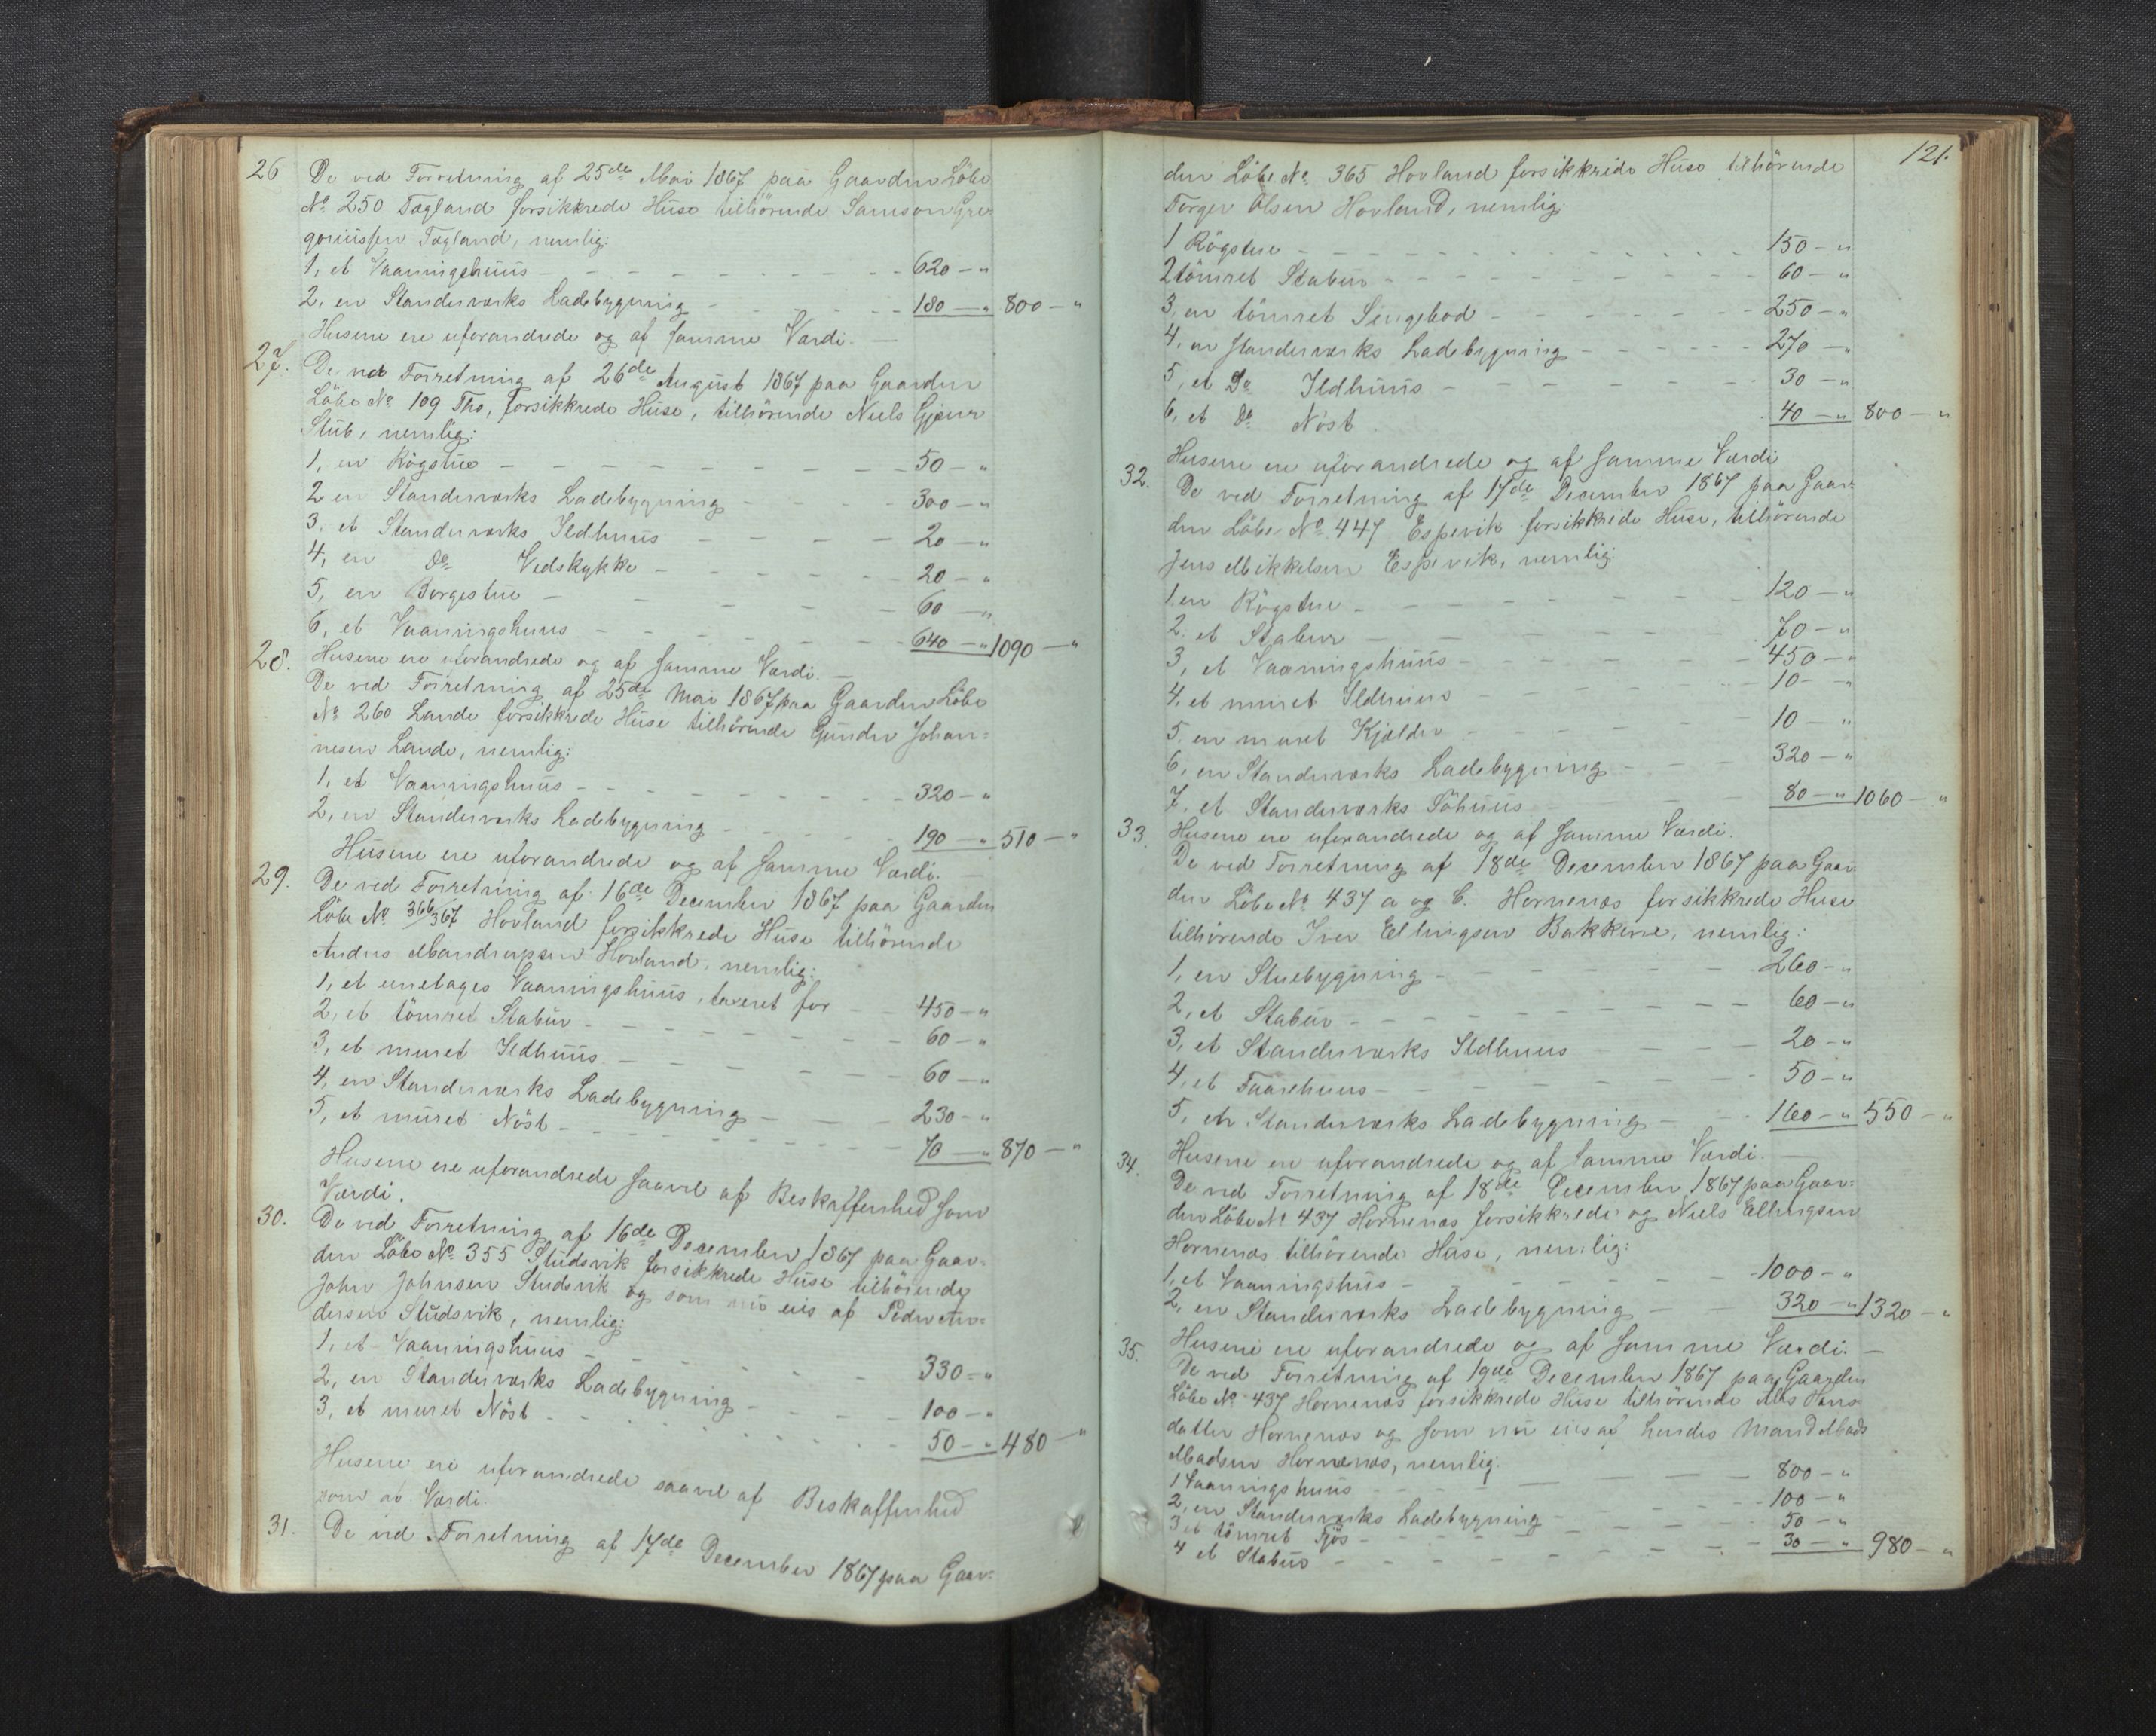 26 De ved Forretning af 25de Mai 1867 paa Gaarden Löbe
No 250 Tagland forsikkrede Huse tilhörende Samson Gre
goriussen Tagland, nemlig:
1, et Vaaningshuus - - - - - - 620 - "
2, en Standerværks Ladebygning - - - 180 - " 800 - "
Husene ere uforandrede og af samme Værdi. -
27. De ved Forretning af 26de August 1867 paa Gaarden
Löbe No 109 Tho, forsikkrede Huse, tilhörende Niels Gjeur
Stub, nemlig:
1, en Rögstue - - - - - - 50 - "
2 en Standerværks Ladebygning - - - 300 - "
3, et Standerværks Ildhuus - - - - 20 - "
4, en do Vedskykke - - - - 20 - "
5, en Borgestue - - - - - 60 - "
6, et Vaaningshuus - - - - - 640 - " 1090 - "
Husene ere uforandrede og af samme Værdi. -
28. De ved Forretning af 25de Mai 1867 paa Gaarden Löbe
No 260 Lande forsikkrede Huse tilhörende Gunder Johan=
nesen Lande, nemlig:
1, et Vaaningshuus - - - - - - 320 - "
2, en Standerværks Ladebygning - - - 190 - " 510 - "
Husene ere uforandrede og af samme Værdi. -
29. De ved Forretning af 16de December 1867 paa Gaarden
Löbe No 366/367 Hovland forsikkrede Huse tilhörende
Anders Mandrupsen Hovland, nemlig:
1, et eenetages Vaaningshuus, taxeret for - - 450 - "
2, et tömret Stabur - - - - - 60 - "
3, et muret Ildhuus - - - - - 60 - "
4, en Standerværks Ladebygning - - - 230 - "
5, et muret Nöst - - - - - - 70 - " 870 - "
Husene ere uforandrede saavel af Beskaffenhed som
Værdi.
30. De ved Forretning af 16de December 1867 paa Gaar=
den Löbe No 355 Studsvik forsikkrede Huse tilhörende
John Johnsen Studsvik og som nu eies af Peder An=
dersen Studsvik, nemlig:
1, et Vaaningshuus - - - - - 330 - "
2, en Standerværks Ladebygning - - - 100 - "
3, et muret Nöst - - - - - - 50 - " 480 - "
Husene ere uforandrede saavel af Beskaffenhed
som af Værdi.
31. De ved Forretning af 17de December 1867 paa Gaar=
121.
den Löbe No 365 Hovland forsikkrede Huse tilhörende
Torger Olsen Hovland, nemlig:
1 Rögstue - - - - - - 150 - "
2 tömret Stabur - - - - - - 60 - "
3, en tömret Sengebod - - - - - 250 - "
4, en Standerværks Ladebygning - - - - 270 - "
5, et Do Ildhuus - - - - - 30 - "
6, et Do Nöst 40 - " 800 - "
Husene ere uforandrede og af samme Værdi
32. De ved Forretning af 17de December 1867 paa Gaar=
den Löbe No 447 Espevik forsikkrede Huse, tilhörende
Jens Mikkelsen Espevik, nemlig:
1. en Rögstue - - - - - - 120 - "
2. et Stabur - - - - - - 70 - "
3, et Vaaningshuus - - - - - 450 - "
4, et muret Ildhuus - - - - - 10 - "
5. en muret Kjælder - - - - - 10 - "
6, en Standerværks Ladebygning - - - 320 - "
7, et Standerværks Töhuus - - - 80 - " 1060 - "
Husene ere uforandrede og af samme Værdi.
33. De ved Forretning af 18de December 1867 paa Gaar
den Löbe No 437 a og C. Hornenæs forsikkrede Huse
tilhörende Iver Ellingsen Bakkerne, nemlig:
1, en Stuebygning - - - - - - 260 - "
2, et Stabur - - - - - - 60 - "
3, et Standerværks Ildhuus - - - - 20 - "
4, et Faarehuus - - - - - - 50 - "
5, en Standerværks Ladebygning - - - 160 - " 550 - "
Husene ere uforandrede og af samme Værdi. -
34. De ved Forretning af 18de December 1867 paa Gaar=
den Löbe No 437 Hornenæs forsikkrede og Niels Ellingsen
Hornenæs tilhörende Huse, nemlig:
1, et Vaaningshus - - - - - - 1000 - "
2, en Standerværks Ladebygning - - 320 - " 1320 - "
Husene ere uforandrede og af samme Værdi. -
35. De ved Forretning af 19de December 1867 paa Gaarden
Löbe No 437 Hornenæs forsikkrede Huse tilhörende Hans
datter Hornenæs og som nu eies af hendes Mand Mads
Madsen Hornenæs, nemlig:
1 Vaaningshuus - - - - - 800 - "
2, en Standerværks Ladebygning - - - 100 - "
3 et tömret Fjös - - - - - 50 - "
4 et Stabur - - - - - - 30 - " 980 - "